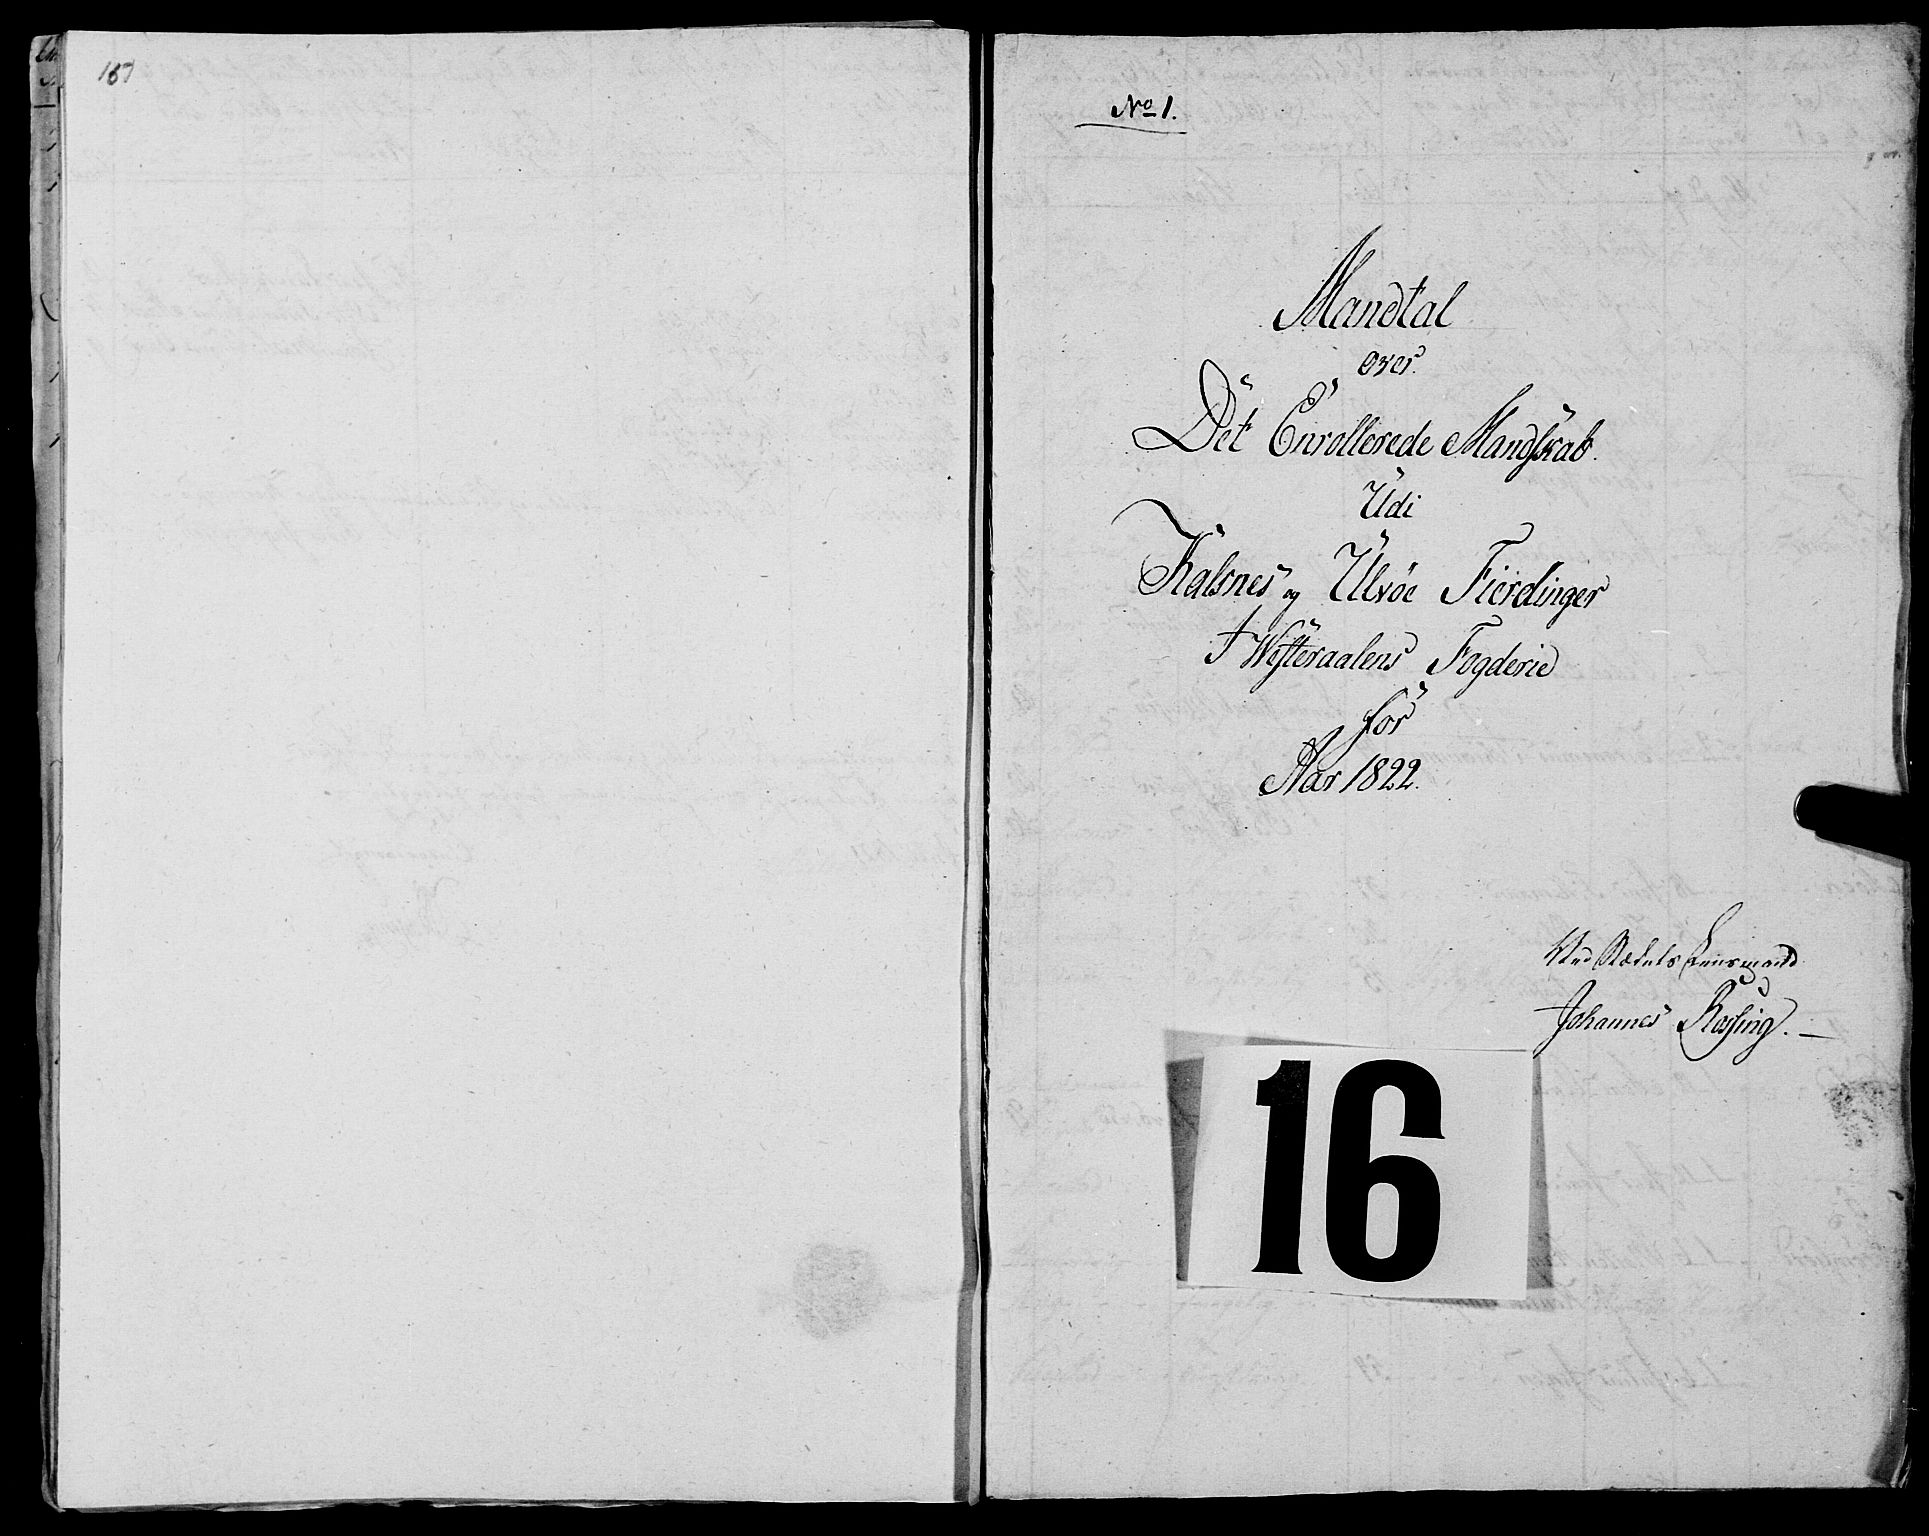 167
No 1.
Mandtal
over
Det Enrollerede Mandskab
Udi
Kalsnes og Ulvöe Fierdinger
I Westeraalens Fogderie
for
Aar 1822.
Ved Stedets Lensmand
Johannes Rosting.
16